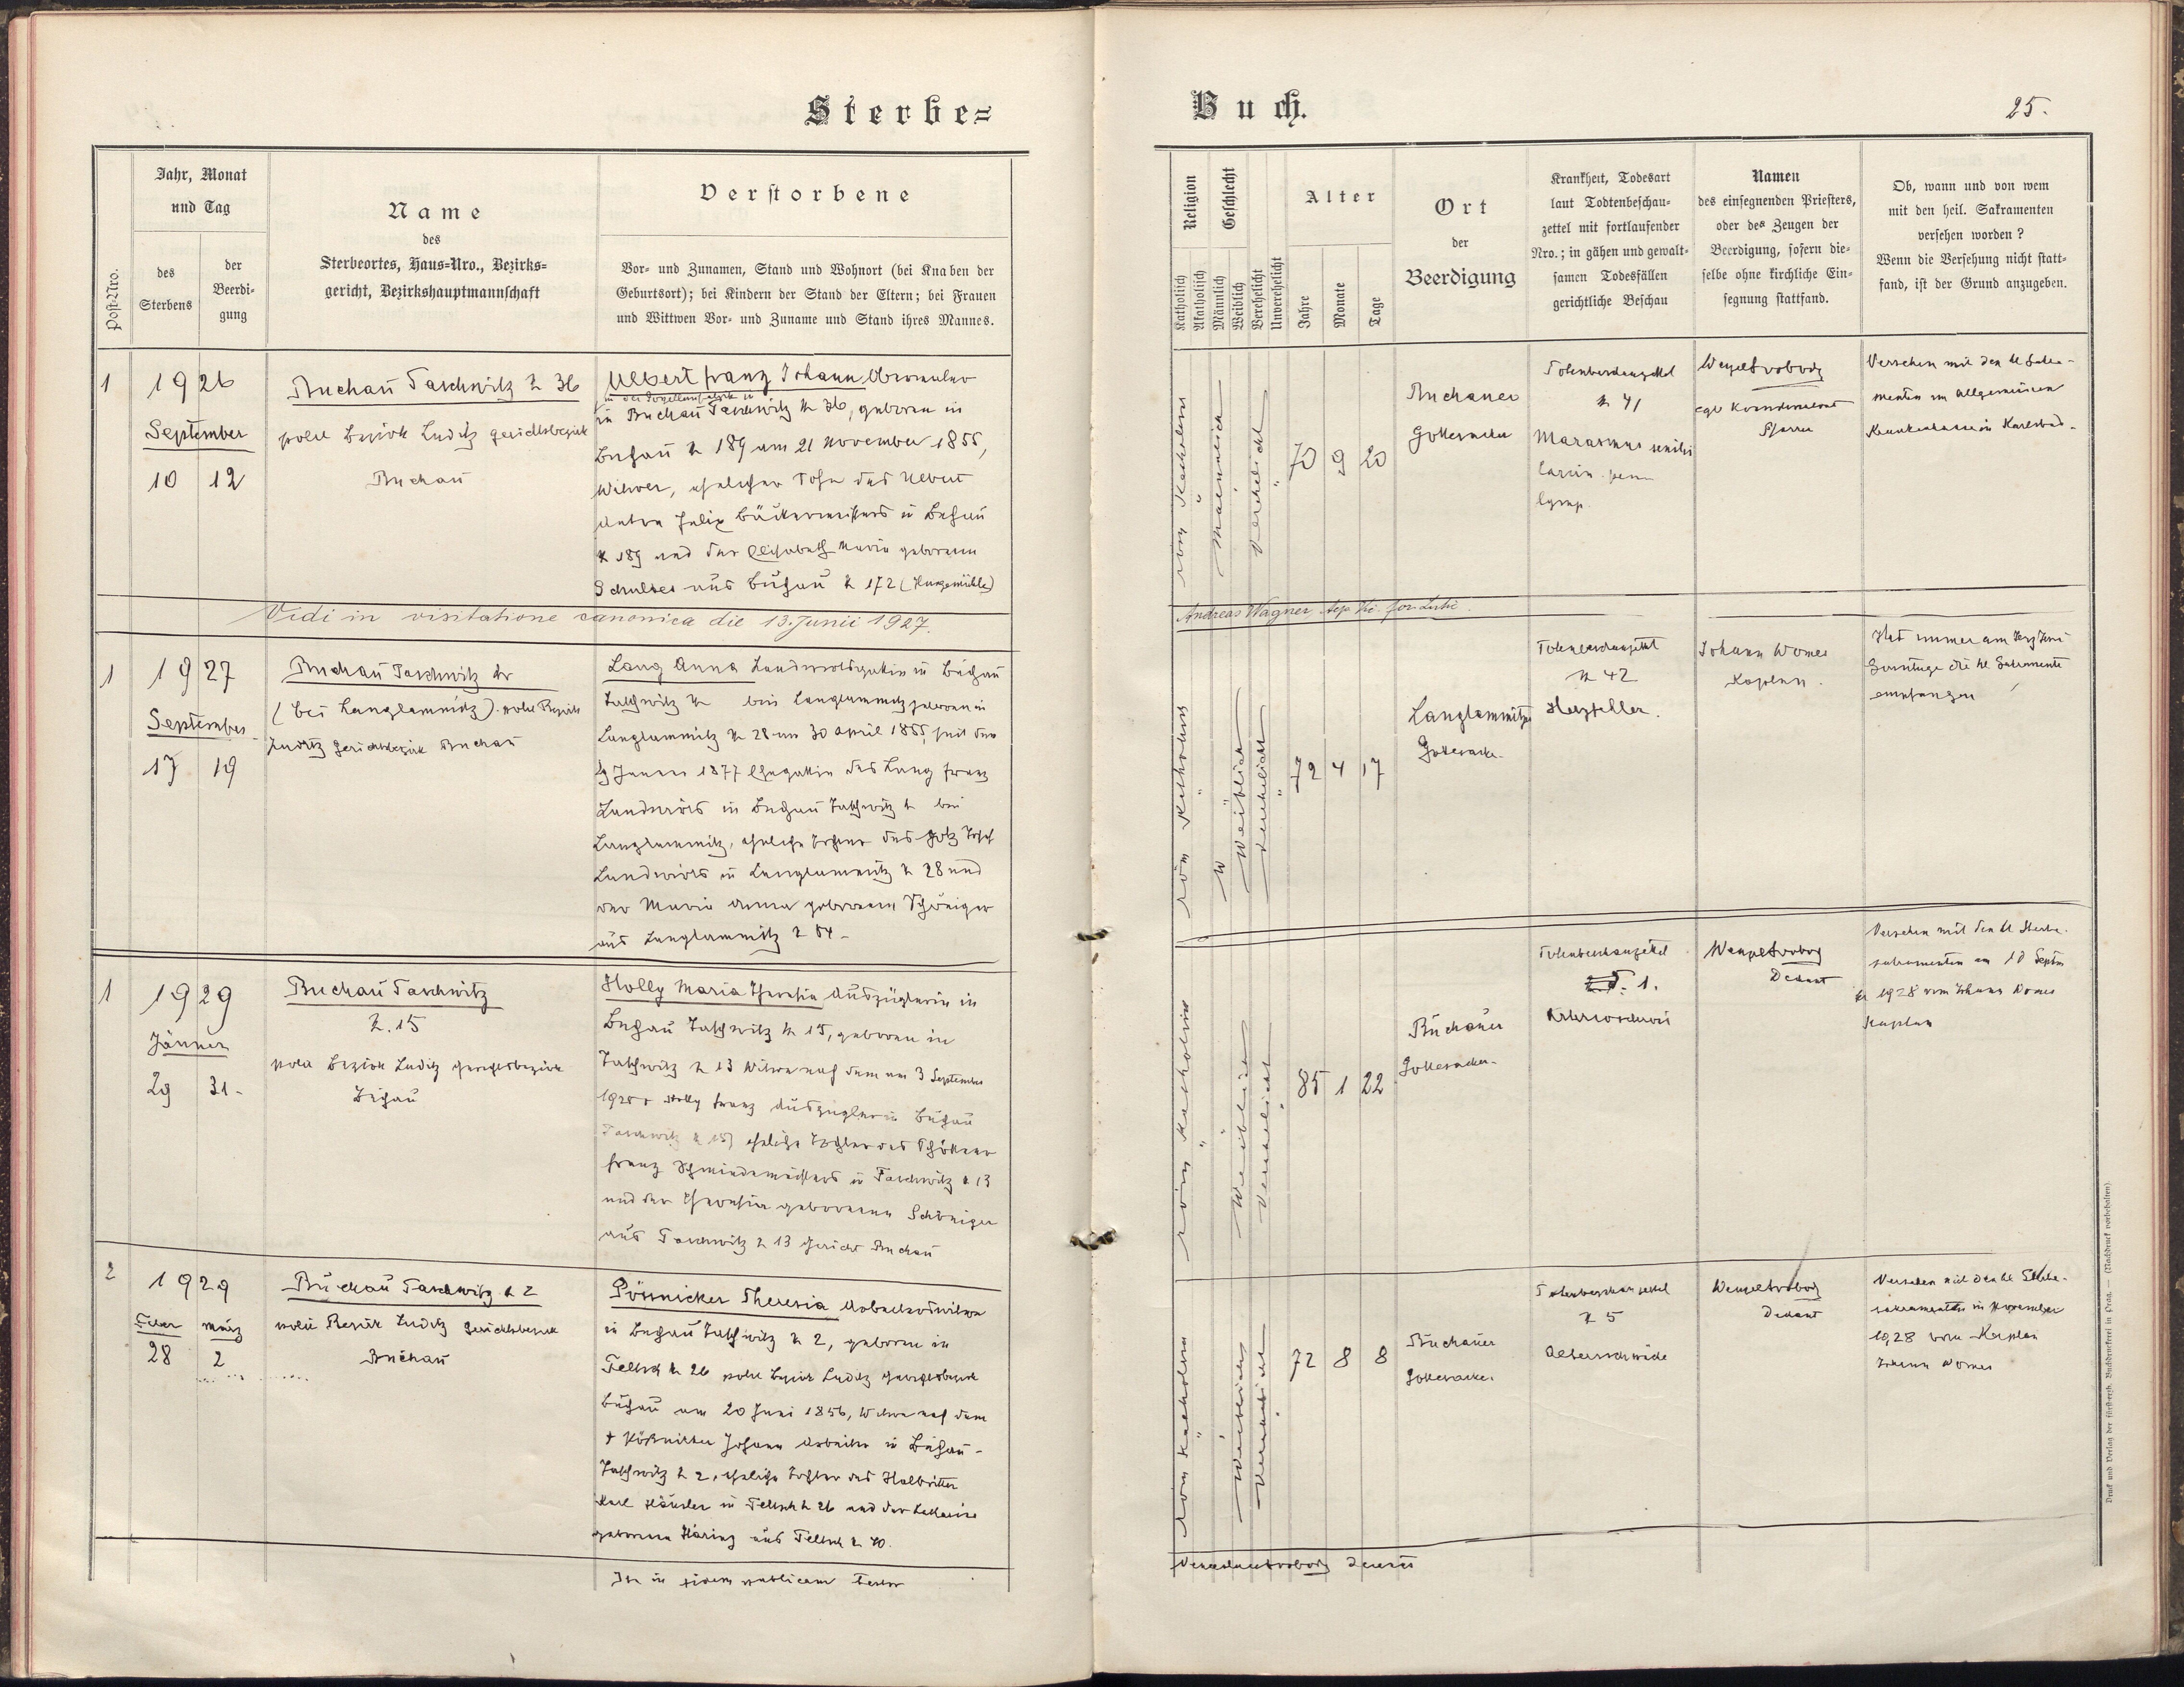 Sterbe=
Buch.
25.
Post=Nro.
Jahr, Monat
und Tag
des
Sterbens
der
Beerdi=
gung
Name
des
Sterbeortes, Haus=Nro., Bezirks=
gericht, Bezirkshauptmannschaft
Verstorbene
Vor= und Zunamen, Stand und Wohnort (bei Knaben der
Geburtsort); bei Kindern der Stand der Eltern; bei Frauen
und Wittwen Vor= und Zuname und Stand ihres Mannes.
Religion
Katholisch
Akatholisch
Geschlecht
Männlich
Weiblich
Verehelicht
Unverehelicht
Alter
Jahre
Monate
Tage
Ort
der
Beerdigung
Krankheit, Todesart
laut Todtenbeschau=
zettel mit fortlaufender
Nro.; in gähen und gewalt=
samen Todesfällen
gerichtliche Beschau
Namen
des einsegnenden Priesters,
oder des Zeugen der
Beerdigung, sofern die=
selbe ohne kirchliche Ein=
segnung stattfand.
Ob, wann und von wem
mit den heil. Sakramenten
versehen worden?
Wenn die Versehung nicht statt=
fand, ist der Grund anzugeben.
1
1926
September
10 12
Buchau Taschwitz N 36
polit Bezirk Luditz Gerichtsbezirk
Buchau
Albert Franz Johann
in Buchau Taschwitz N 36, geboren in
Buchau N 189 am 21 November 1855,
Witwer, ehelicher Sohn des Albert
Anton Felix Bäckermeisters in Buchau
N 189 und der Elisabeth Maria geborenen
aus Buchau N 172
röm Katholisch
Männlich
Verehelicht
70 9 20
Buchauer
Gottesacker
Totenbeschauzettel
N 41
Marasmus senilis
Wenzel Svoboda
Pfarrer
Versehen mit den hl Sakra-
menten im Allgemeinen
Krankenhause in Karlsbad.
Vidi in visitatione canonica die 13. Junii 1927.
Andreas Wagner
1
1927
September
17 19
Buchau Taschwitz
(bei Langlammitz) polit Bezirk
Luditz Gerichtsbezirk Buchau
Lang Anna Landwirtsgattin in Buchau
Taschwitz N bei Langlammitz geboren in
Langlammitz N 28 am 30 April 1855, seit dem
1877 Ehegattin des Lang Franz
Landwirts in Buchau Taschwitz N bei
Langlammitz, eheliche Tochter des Götz Josef
Landwirts in Langlammitz N 28 und
der Maria Anna geborenen Schöniger
aus Langlammitz N
röm Katholisch
Weiblich
Verehelicht
72 4 17
Langlammitzer
Gottesacker
Totenbeschauzettel
N 42
Herzfehler.
Johann Womes
Kaplan.
Hat immer am Herz Jesu
Sonntage die hl Sakramente
empfangen
1
1929
Jänner
29 31.
Buchau Taschwitz
N. 15
polit Bezirk Luditz Gerichtsbezirk
Buchau
Holly Maria Theresia Auszüglerin in
Buchau Taschwitz N 15, geboren in
Taschwitz N 13 Witwe nach dem am 3 September
Holly Franz Auszügler in Buchau
Taschwitz N 15, eheliche Tochter des
Franz Schmiedemeisters in Taschwitz N 13
und der Theresia geborenen Schöniger
aus Taschwitz N 13 Gericht Buchau
röm Katholisch
Weiblich
Verehelicht
85 1 22
Buchauer
Gottesacker
Totenbeschauzettel
N. 1.
Wenzel Svoboda
Dechant
Versehen mit den hl Sterbe-
sakramenten am 10 Septem
ber 1928 vom Johann Womes
Kaplan
2
1929
Feber März
28 2
Buchau Taschwitz N 2
polit Bezirk Luditz Gerichtsbezirk
Buchau
Pössnicker Theresia Arbeiterswitwe
in Buchau Taschwitz N 2, geboren in
Teltsch N 26 polit Bezirk Luditz Gerichtsbezirk
Buchau am 20 Juni 1856, Witwe nach dem
† Pößnicker Johann Arbeiter in Buchau-
Taschwitz N 2, eheliche Tochter des Halbritter
Karl Häusler in Teltsch N 26 und der
geborenen Häring aus Teltsch N
röm Katholisch
Weiblich
72 8 8
Buchauer
Gottesacker
Totenbeschauzettel
N 5
Altersschwäche
Wenzel Svoboda
Dechant
Versehen mit den hl Sterbe-
sakramenten im November
1928 vom Kaplan
Johann Womes
Ita in fidem publicam testor
Wenceslaus Svoboda
Druck und Verlag der fürsterzb. Buchdruckerei in Prag. — (Nachdruck vorbehalten).